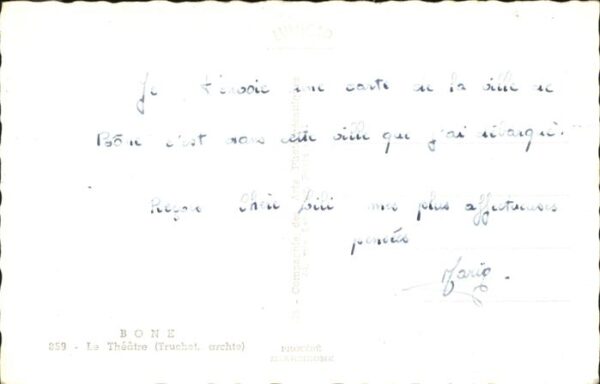 LUMICAP
Je t'envoie une carte de la ville de
Bône c'est dans cette ville que j'ai débarqué.
Reçois Chère Lili mes plus affectueuses
pensées
Mario.
BONE
259 - Le Théâtre (Truchet, archte)
PROCÉDÉ
Compagnie des Arts Photomécaniques